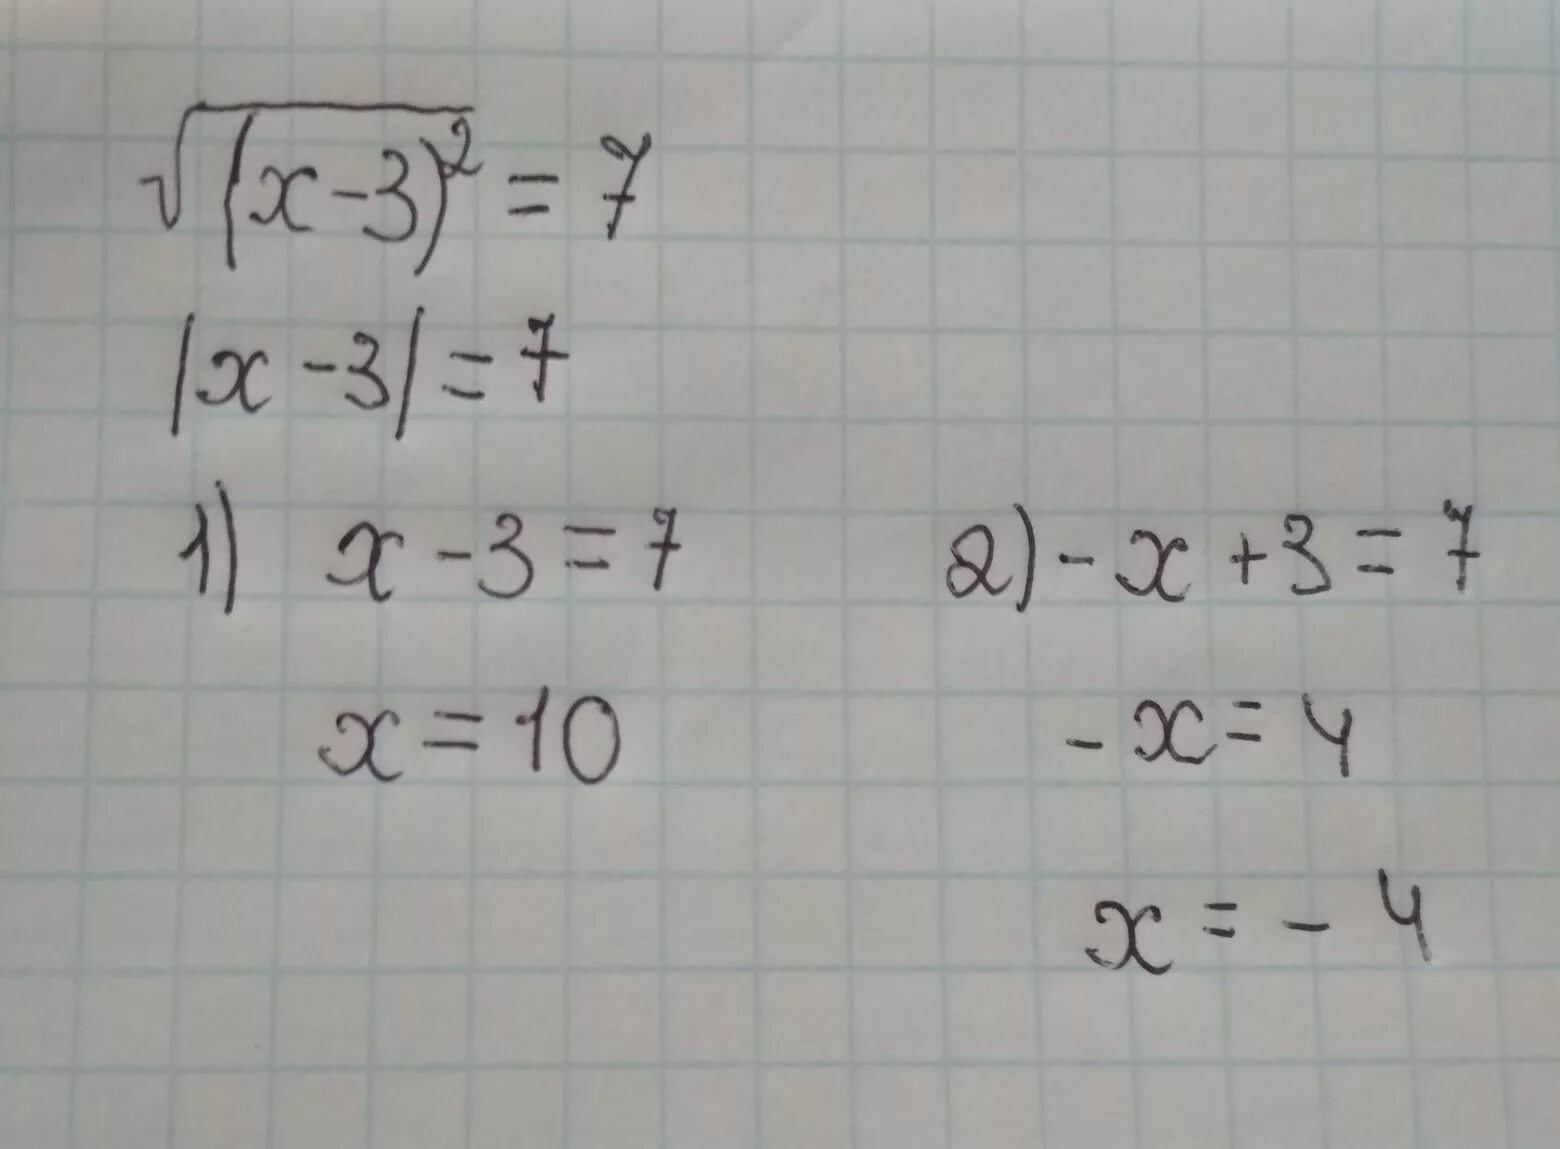 √(x-3)² = 7
|x-3| = 7
1) x-3=7
2) -x+3=7
x=10
-x=4
x=-4